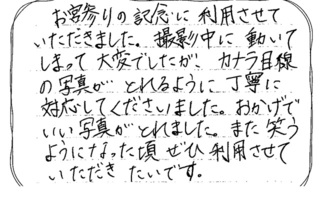 お宮参りの記念に利用させて
いただきました。撮影中に動いて
しまって大変でしたが、カナラ目線
の写真がとれるように丁寧に
対応してくださいました。おかげで
いい写真がとれました。また笑う
ようになった頃ぜひ利用させて
いただきたいです。